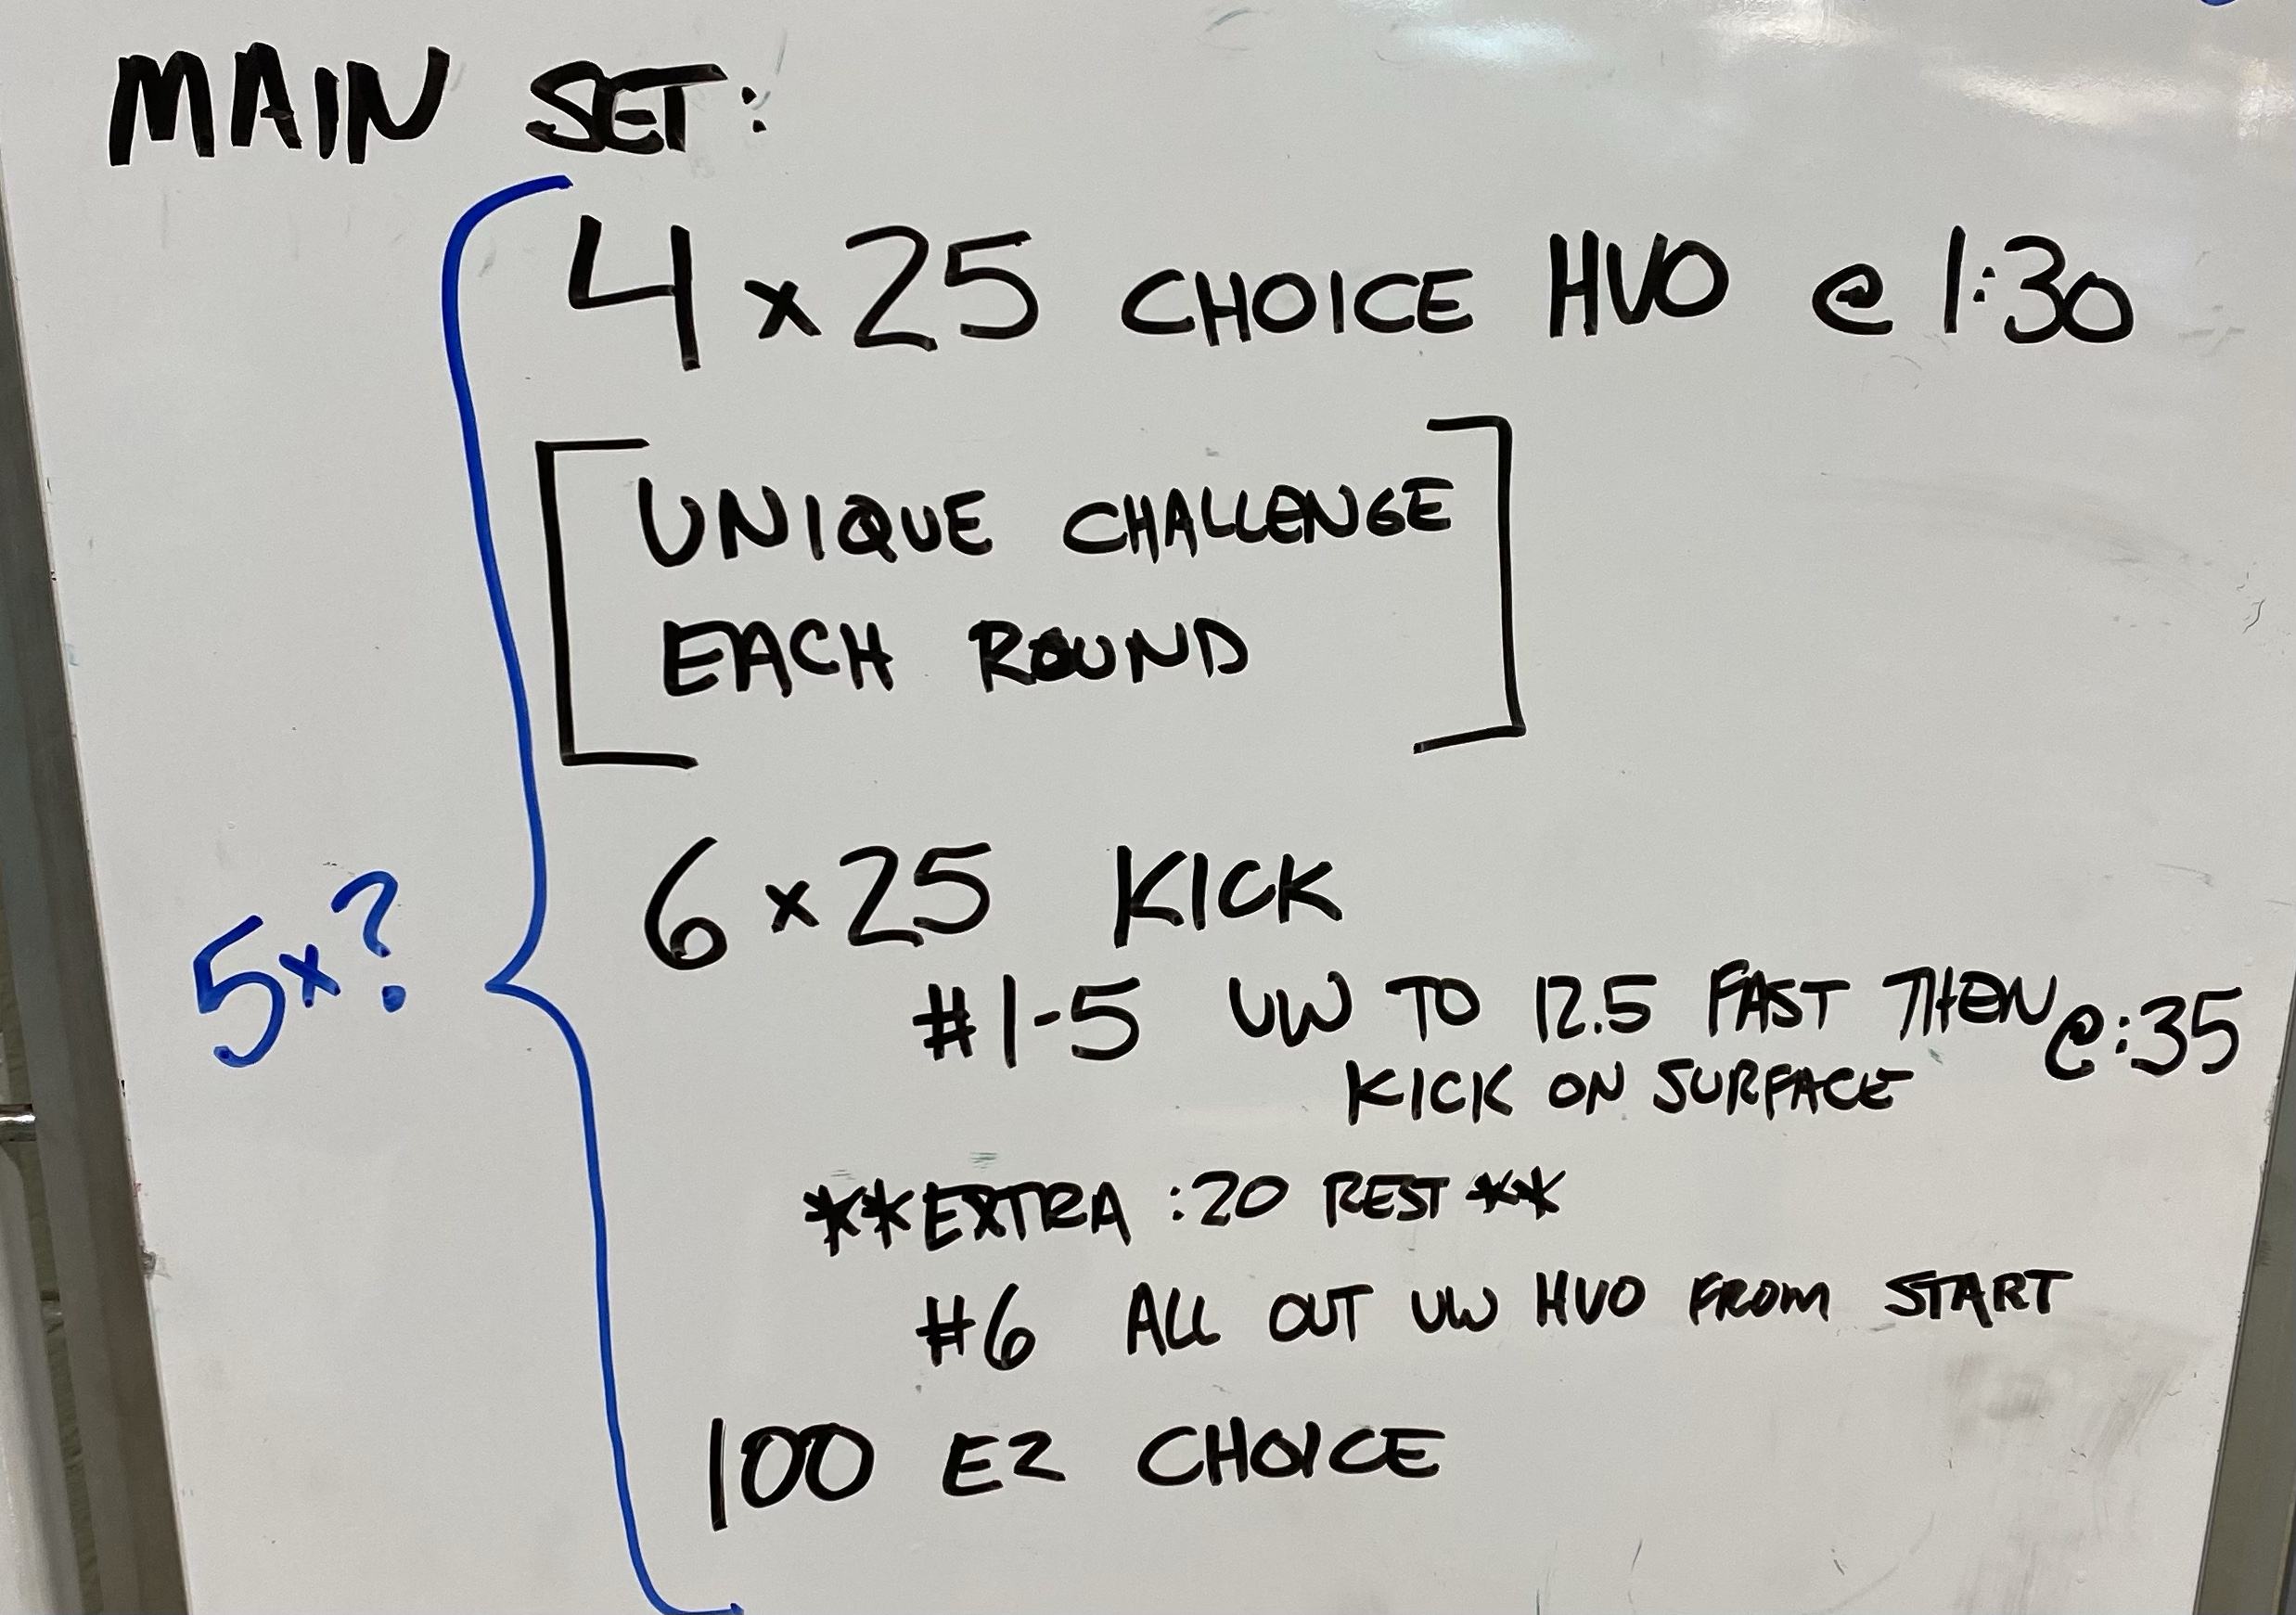 MAIN SET:
4 x 25 CHOICE HVO @ 1:30
[UNIQUE CHALLENGE
EACH ROUND]
5x?
6 x 25 KICK
#1-5 UW TO 12.5 FAST THEN @ :35
KICK ON SURFACE
**EXTRA :20 REST**
#6 ALL OUT UW HVO FROM START
100 EZ CHOICE